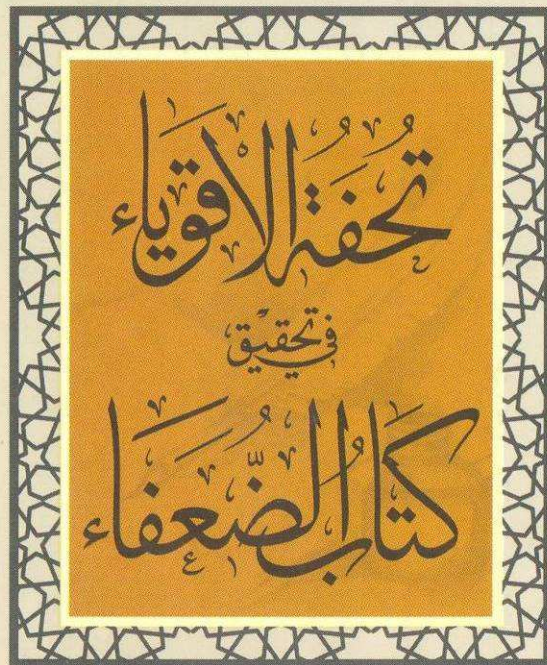 تُحْفَةُ الْأَقْوِيَاء
في تحقيق
كتَابُ الضُّعَفَاء